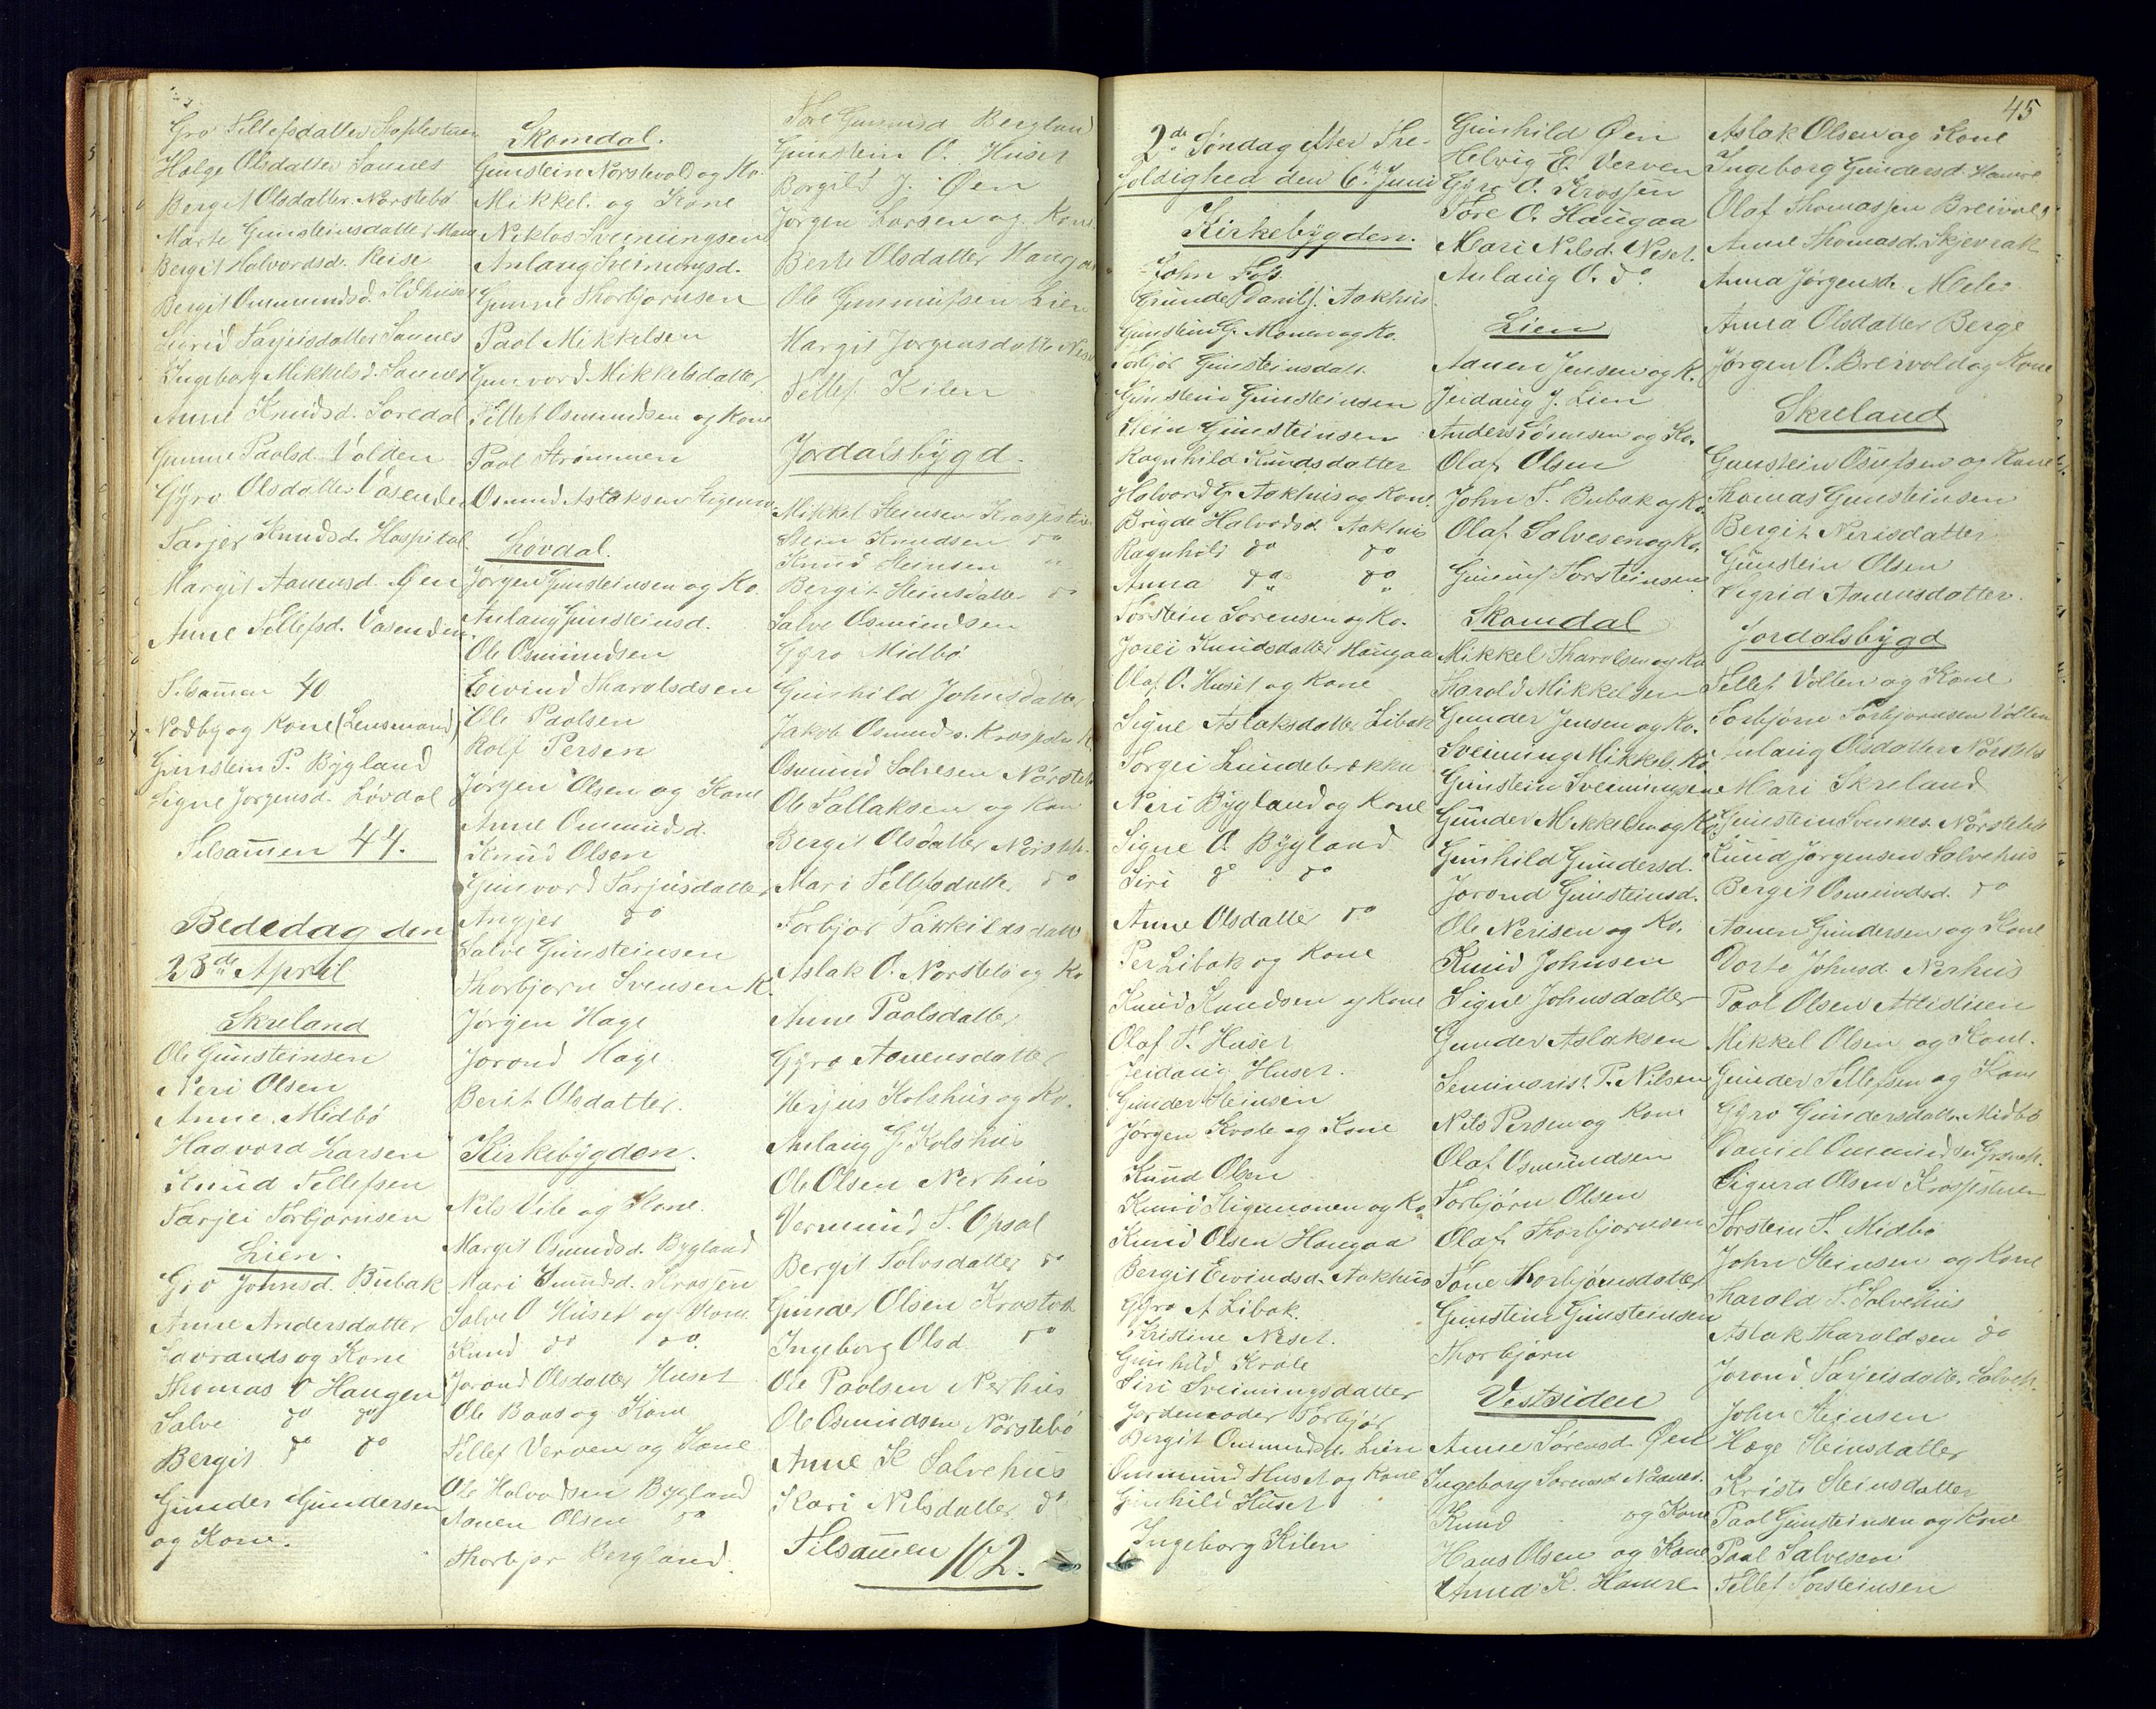 Gro Tellefsdatter
Helge Olsdatter Sannes
Bergit Olsdatter Norstebø
Marte Gunsteinsdatter
Bergit Halvordsd. Reise
Bergit Ommundsd.
Sigrid Tarjeisdatter Sannes
Ingeborg Mikkelsd. Sannes
Anne Knudsd. Søredal
Gunne Paolsd. Volden
Gyro Olsdatter Vasenden
Tarjer Knudsd. Hospital
Margit Aanensd. Øen
Anne Tellefsd. Vasenden
Tilsam̅en 40
Nodby og Kone (Lensmand)
Gunstein P. Bygland
Signe Jørgensd. Løvdal
Tilsam̅en 44.
Bededag den
23de April
Skreland
Ole Gunsteinsen
Neri Olsen
Anne Midbø
Haavord Larsen
Knud Tellefsen
Tarjei Torbjørnsen
Lien.
Gro Johnsd. Bubak
Anne Andersdatter
og Kone
Thomas O Haugen
Salve do do
Bergit do do
Gunder Gundersen
og Kone.
Skomdal.
Gunstein Norstevold og Ko.
Mikkel. og Kone
Niklos Sveinungsen
Anlaug Sveinungsd.
Gunne Thorbjørnsen
Paol Mikkelsen
Gunvord Mikkelsdatter
Tellef Osmundsen og Kone
Paol Strømmen
Osmund Aslaksen
Løvdal.
Jørgen Gunsteinsen og Ko.
Anlaug Gunsteinsd.
Ole Osmundsen
Eivind Tharolsdsen
Ole Paolsen
Rolf Persen
Jørgen Olsen og Kone
Anne Ommundsd.
Knud Olsen
Gunvord Tarjusdatter
Angjer do
Salve Gunsteinsen
Thorbjørn Svensen K.
Jørgen Hage
Jorond Hage
Berit Olsdatter.
Kirkebygden.
Nils Vile og Kone.
Margit Osmundsd. Bygland
Mari
Salve O Huset og Kone
Knud do do.
Jorond Olsdatter Huset
Ole Baas og Kone
Tellef Verven og Kone
Ole Halvordsen Bygland
Aanen Olsen do
Thorbjør Bergland.
Tore Gunnufsd Bergland
Gunstein O. Huset
Borgild J. Øen
Jørgen Larsen og Kone.
Berte Olsdatter Haugaa
Ole Gunnufsen Lien
Margit Jørgensdatter Neset
Tellef Kilen
Jordalsbygd.
Mikkel Steinsen
Stein Knudsen do
Knud Steinsen do
Bergit Steinsdatter do
Salve Osmundsen
Gyro Midbø
Gunhild Johnsdatter
Jakob Osmunds.
Osmund Salvesen Nørstebø
Ole Tallaksen og Kone
Bergit Olsdatter Nørsteb.
Mari Tellefsdatter do
Torbjør
Aslak O. Nørstebø og Ko
Anne Paolsdatter
Gyro Aanensdatter
Herjus Kolshus og Ko.
Anlaug G. Kolshus
Ole Olsen Nerhus
Vermund T. Opsal
Bergit Tolvsdatter do
Gunder Olsen
Ingeborg Olsd. do
Ole Paolsen Nerhus
Ole Osmundsen Nørstebø
Anne K Salvehus
Kari Nilsdatter do
Tilsam̅en 102.
45
2de Søndag efter Tre-
foldighed den 6te Juni
Kirkebygden.
John Fos
Gunde Danilsj. Aakhus
Gunstein G. Monen og Ko.
Torbjør Gunsteinsdatt.
Gunstein Gunsteinsen
Stein Gunsteinsen
Ragnhild Knudsdatter
Halvord G. Aakhus og Kone
Brigde Halvordsd. Aakhus
Ragnhild do do
Anna do do
Torstein Sorensen og Ko.
Jorei Knudsdatter Haugaa
Olaf O. Huset og Kone
Signe Aslaksdatter Libak
Torgei Lundebrekka
Neri Bygland og Kone
Signe O. Bygland
Siri do do
Anne Olsdatter do
Per Libak og Kone
Knud Knudsen og Kone
Olaf T. Huset
Jeidaug Huset.
Gunder Steinsen
Jørgen Krote og Kone
Knud Olsen
Knud Stigemonen og Ko
Knud Olsen Haugaa
Bergit Eivindsd. Aakhus
Gyro A Libak.
Kristine Neset.
Gunhild Krote
Siri Sveinungsdatter
Jordemoder Torbjør
Bergit Ommundsd. Lien
Ommund Huset og Kone
Gunhild Huset
Ingeborg Kilen
Gunhild Øen
Helvig E. Verven
Gyro O. Krossen
Tore O. Haugaa
Mari Nilsd. Neset.
Anlaug O. do.
Lien
Aanen Jensen og K.
Jeidaug J. Lien
Anders Sørensen og Ko.
Olaf Olsen
John T. Bubak og Ko.
Olaf Salvesen og Ko.
Gunnuf Torsteinsen
Skomdal
Mikkel Tharolsen og Ko
Tharold Mikkelsen
Gunder Jensen og Ko.
Sveinung Mikkels. Ko.
Gunstein Sveinungsen
Gunder Mikkelsen og Ko.
Gunhild Gundersd.
Jorond Gunsteinsd.
Ole Nerisen og Ko.
Knud Johnsen
Signe Johnsdatter
Gunder Aslaksen
Seminarist P. Nilsen
Nils Persen og Kone
Olaf Osmundsen
Torbjørn Olsen
Olaf Thorbjørnsen
Tone Thorbjørnsdatter
Gunstein Gunsteinsen
Thorbjørn
Vestsiden
Anne Sørensd. Øen
Ingeborg Sorensd.
Knud og Kone
Hans Olsen og Kone
Anna K. Hamre
Aslak Olsen og Kone
Ingeborg Gundersd. Hamre
Olaf Thomassen Breivold
Anne Thomasd. Skjevrak
Anna Jørgensd.
Anna Olsdatter Berge
Jørgen O. Breivold og Kone
Skreland
Gunstein Osufsen og Kone
Thomas Gunsteinsen
Bergit Nerisdatter
Gunstein Olsen
Sigrid Aanensdatter.
Jordalsbygd
Tellef Volten og Kone
Torbjørn Torbjørnsen Volten
Anlaug Olsdatter Nørstebø
Mari Skreland
Gunstein Nørstebø
Knud Jørgensen Salvehus
Bergit Osmundsd. do
Aanen Gundersen og Kone
Dorte Johnsd. Nerhus
Paol Olsen
Mikkel Olsen og Kone.
Gunder Tellefsen og Kone
Gyro Gundersdatter Midbø
Daniel Ommundsen
Sigurd Olsen Krossestuen
Torstein T. Midbø
John Steinsen og Kone
Tharold T. Salvehus
Aslak Tharoldsen do
Jorond Tarjeisdatter Salveh.
John Steinsen
Hæge Steinsdatter
Kristi Steinsdatter
Paol Gunsteinsen og Kone
Paal Salvesen
Tellef Torsteinsen